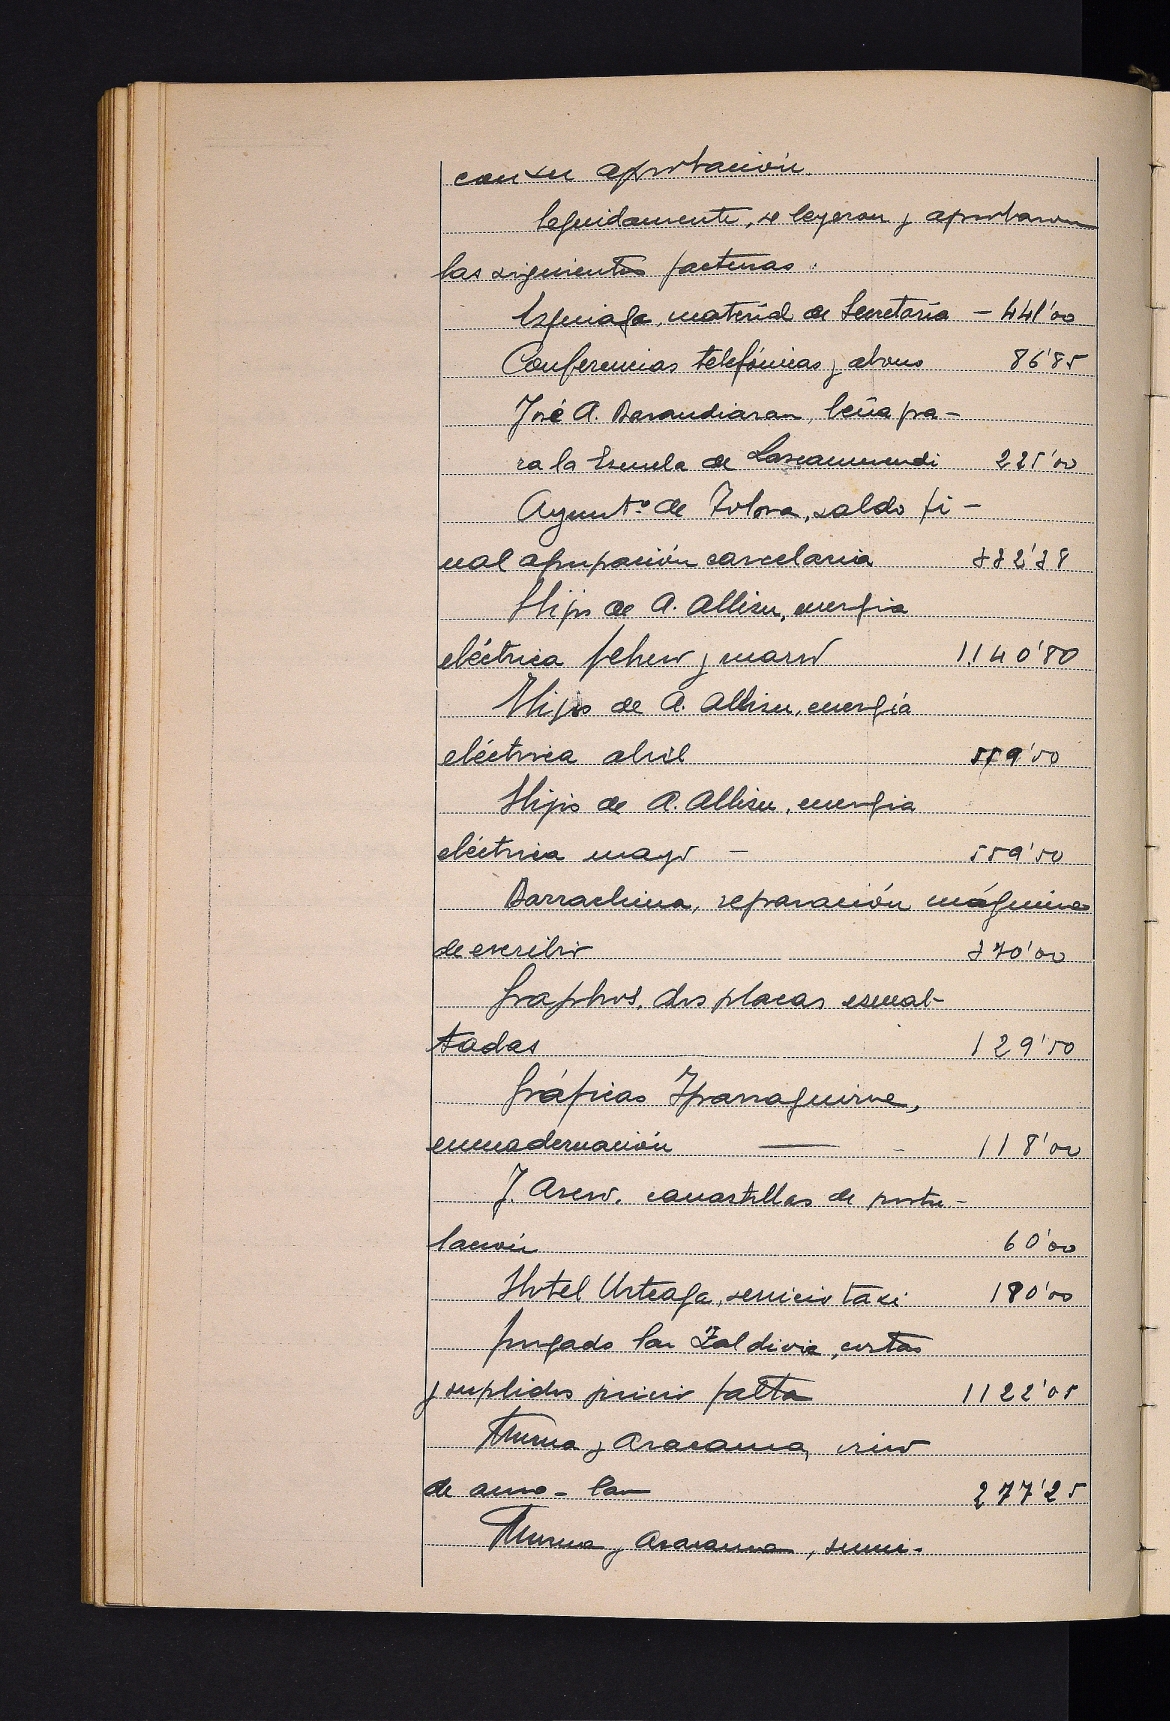 con su aprobación.
Seguidamente, se leyeron y aprobaron
las siguientes facturas:
Izguiaga, material de Secretaría — 441'00
Conferencias telefónicas y abono 86'85
José A. Barandiaran, leña pa-
ra la Escuela de Lazcaomendi 225'00
Ayuntº de Tolosa, saldo fi-
nal agrupación carcelaria 332'38
Hijos de A. Albisu, energia
eléctrica febrero y marzo 1140'80
Hijos de A. Albisu, energía
eléctrica abril 559'50
Hijos de A. Albisu, energia
eléctrica mayo — 559'50
Barrachina, reparación máquina
de escribir 370'00
Graphos, dos placas esmal-
tadas 129'50
Gráficas Yparraguirre,
encuadernación — 118'00
J. Asero, canastillas de postu-
lación 60'00
Hotel Urteaga, servicio taxi 180'00
Juzgado San Zaldivia, costas
y suplidos juicio falta 1122'05
y Aracama,
de 277'25
y Aracama, sumi-